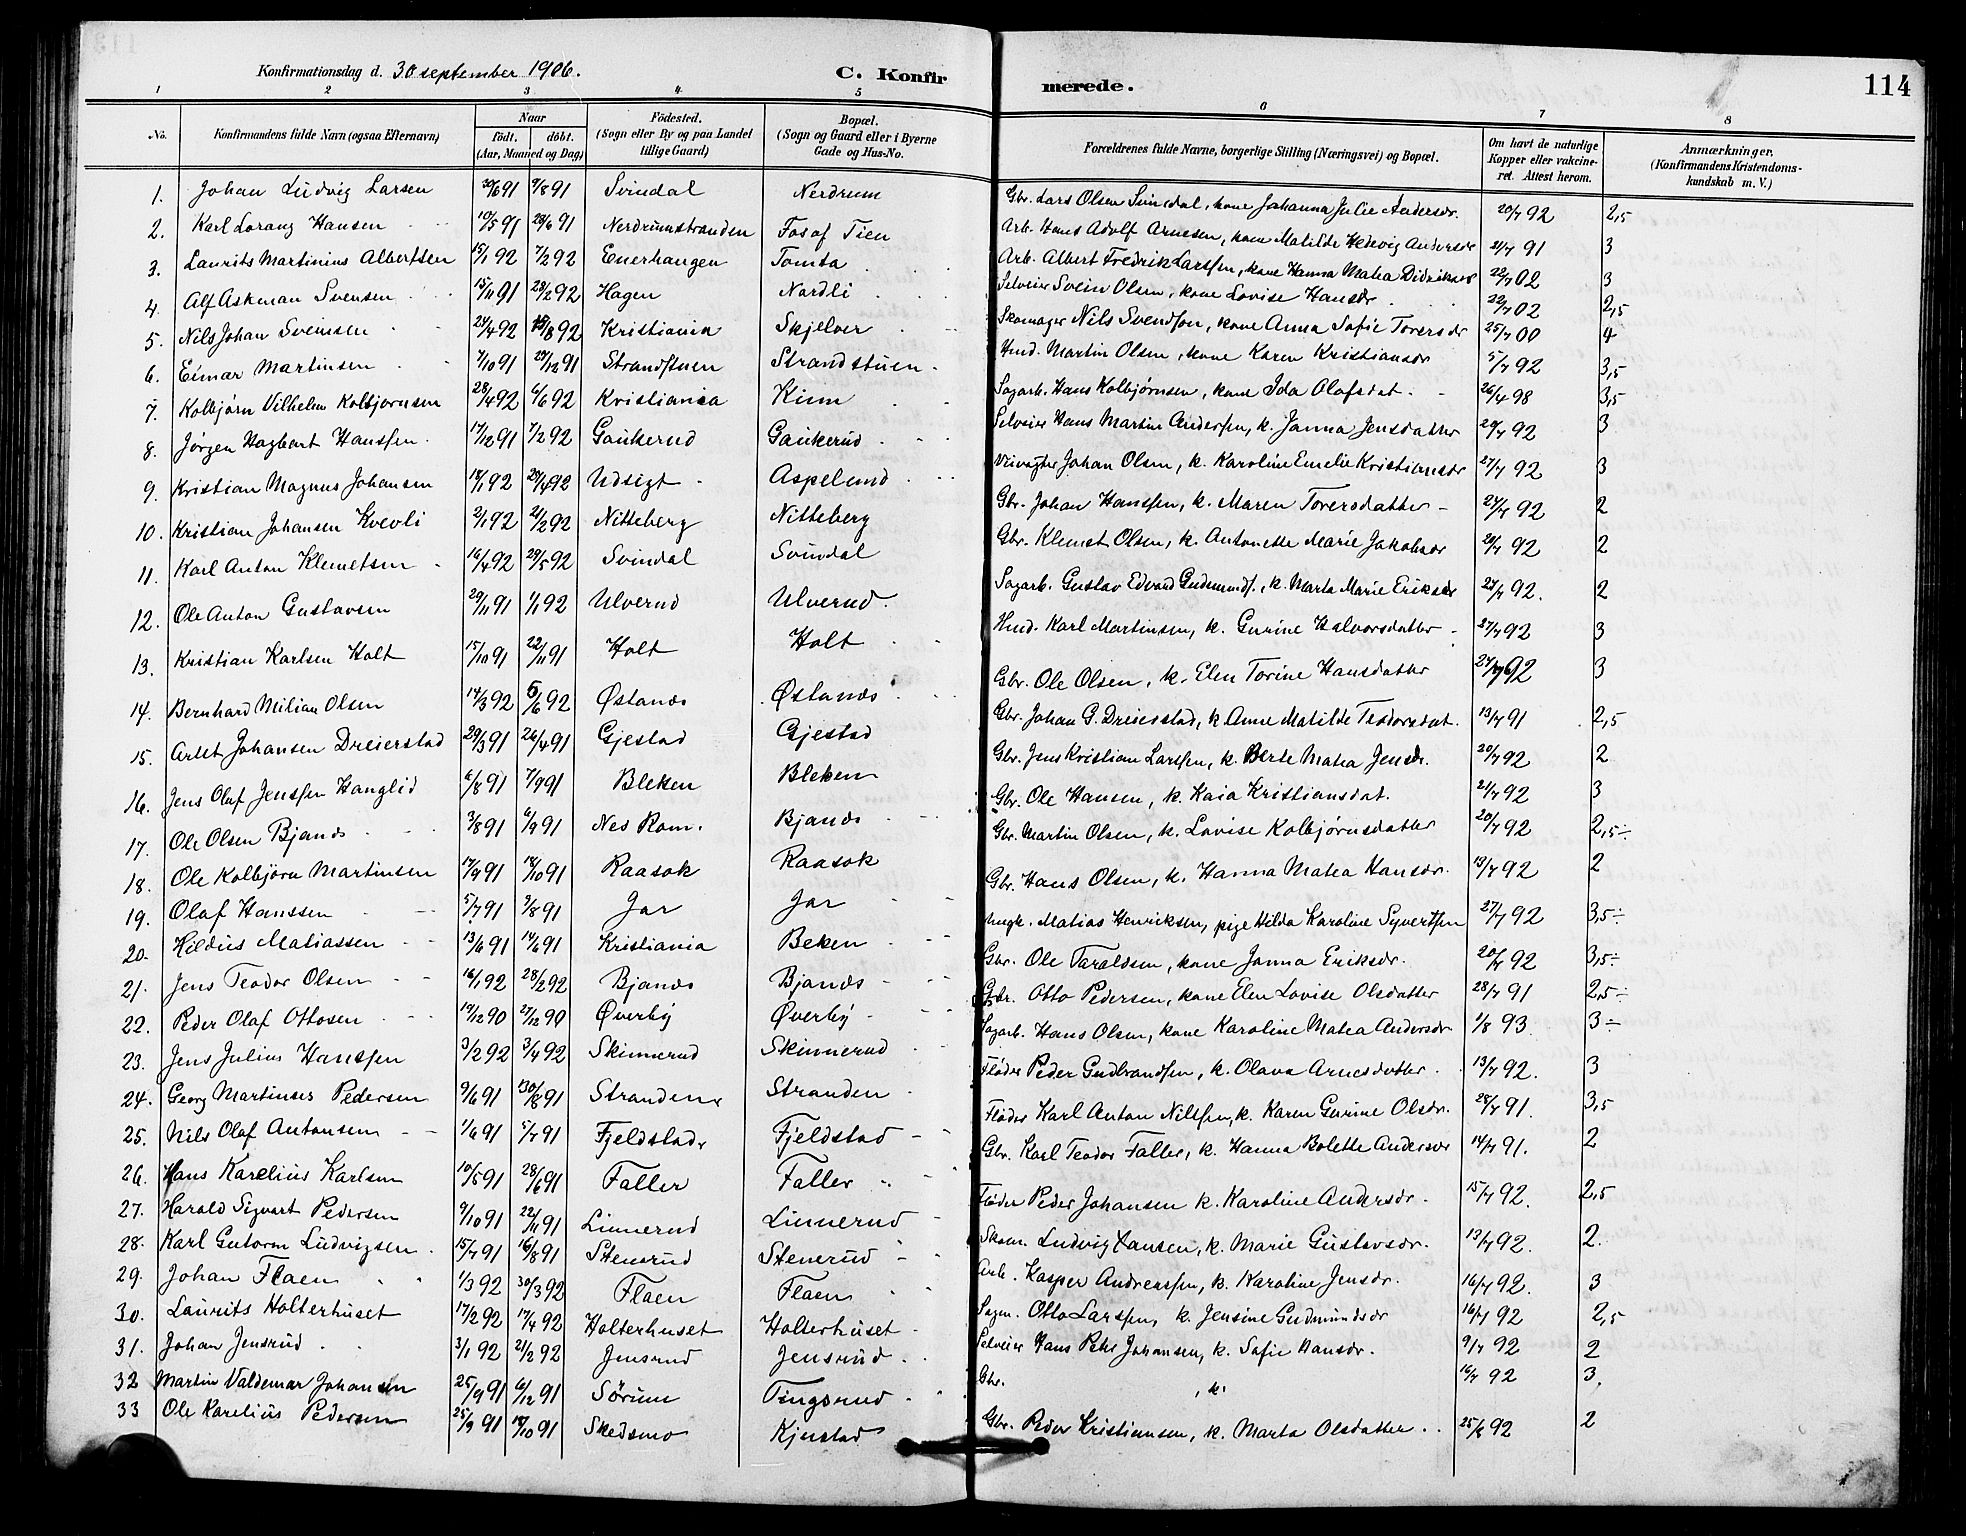 Konfirmationsdag d. 30 september 1906. C. Konfirmerede. 114
1 2 3 4 5 6 7 8
No. Konfirmandens fulde Navn (ogsaa Efternavn) Naar födt. döbt. (Aar, Maaned og Dag) Födested. (Sogn eller By og paa Landet tillige Gaard) Bopæl. (Sogn og Gaard eller i Byerne Gade og Hus-No. Forældrenes fulde Navne, borgerlige Stilling (Næringsvei) og Bopæl. Om havt de naturlige Kopper eller vakcineret. Attest herom. Anmærkninger, (Konfirmandens Kristendomskundskab m. V.)
1. Johan Ludvig Larsen 30/6 91 9/8 91 Svindal Nerdrum Gbr. Lars Olsen Svindal, kone Johanna Julie Andersdr. 20/7 92 2,5
2. Karl Lorang Hansen 10/5 91 28/6 91 Nerdrumstranden Fosaf Tien Arb. Hans Adolf Arnesen, kone Matilde Hedevig Andersdr 21/7 91 3
3. Laurits Martinius Albertsen 15/1 92 7/2 92 Enerhaugen Tomta Arb. Albert Fredrik Larssen, kone Hanna Matea Didriksdr 22/7 02 3
4. Alf Askman Svensen 15/11 91 28/2 92 Hagen Nordli Selveier Svein Olsen, kone Lovise Hansdr. 22/7 02 2,5
5. Nils Johan Svensen 24/4 92 15/8 92 Kristiania Skjelver Skomager Nils Svendson, kone Anna Sofie Toversdr 25/7 00 4
6. Einar Martinsen 7/10 91 29/12 91 Strandstuen Strandstuen Hmd. Martin Olsen, kone Karen Kristiansdr 5/7 92 3,5
7. Kolbjørn Vilhelm Kolbjørnsen 28/4 92 6/6 92 Kristiania Kinn Sagarb. Hans Kolbjørnsen, kone Ida Olafsdat. 26/4 98 3,5
8. Jørgen Hagbart Hanssen. 17/12 91 7/2 92 Gaukerud Gaukerud Selveier Hans Martin Anderssen, k. Janna Jensdatter 20/7 92 3
9. Kristian Magnus Johansen 18/1 92 24/4 92 Udsigt Aspelund Veivogter Johan Olsen, k. Karoline Emelie Kristiansdr 27/7 92 3
10. Kristian Johansen Kvevli 2/1 92 21/2 92 Nitteberg Nitteberg Gbr. Johan Hanssen, k. Maren Toversdatter 27/7 92 2
11. Karl Anton Klemetsen 16/4 92 29/5 92 Svindal Svindal Gbr. Klemet Olsen, k. Antonette Marie Jakobsdr 20/7 92 2
12. Ole Anton Gustavsen 29/11 91 1/1 92 Ulverud Ulverud. Sagarb. Gustav Edvard Gudmunds., k. Marta Marie Eriksdr 27/7 92. 2
13. Kristian Karlsen Holt 15/10 91 22/11 91 Holt Holt Hmd. Karl Martinsen, k. Gurine Halvorsdatter 27/7 92 3
14. Bernhard Milian Olsen 14/3 92 5/6 92 Østands Østands Gbr. Ole Olsen, k. Elen Torine Hansdatter 27/7 92 3
15. Arlet Johansen Dreierstad 29/3 91 26/4 91 Gjestad Gjestad Gbr. Johan G. Dreierstad, k. Anne Matilde Teodorsdat. 13/7 91 2,5
16. Jens Olaf Jenssen Hanglid 6/8 91 7/9 91 Bleken Bleken Gbr. Jens Kristian Larssen, k. Berte Matea Jensdr. 20/7 92 2
17. Ole Olsen Bjands 3/8 91 6/9 91 Nes Rom. Bjands Gbr. Ole Hansen, k. Kaia Kristiansdat. 21/7 92 3
18. Ole Kolbjørn Martinsen 17/9 91 18/10 91 Raasok Raasok Gbr. Martin Olsen, k. Lovise Kolbjørnsdatter 20/7 92 2,5÷
19. Olaf Hanssen 5/7 91 2/8 91 Jar Jar Gbr. Hans Olsen, k. Hanna Matea Hansdr. 13/7 92 2
20. Hildus Matiassen 13/6 91 14/6 91 Kristiania Beken Ungk. Matias Henriksen, pige Hilda Karoline Syvertsen 27/7 92 3,5÷
21. Jens Teodor Olsen 16/1 92 28/2 92 Bjands Bjands Gbr. Ole Taraldsen, kone Janna Eriksdr. 20/7 92 3,5÷
22. Peder Olaf Ottosen 19/12 90 27/12 90 Øverby Øverby Gbr. Otto Pedersen, kone Elen Lovise Olsdatter 28/7 91 2,5÷
23. Jens Julius Hanssen 3/2 92 3/4 92 Skinnerud Skinnerud Sagarb. Hans Olsen, kone Karoline Matea Andersdr 1/8 93 3÷
24. Georg Martinses Pedersen 9/6 91 30/8 91 Strandene Stranden Fløder Peder Gudbrandsen, k. Olava Arnesdatter 13/7 92. 3
25. Nils Olaf Antonsen 1/6 91 5/7 91 Fjeldstad Fjeldstad Fløder Karl Anton Nilssen, k. Karen Gurine Olsdr. 28/7 91. 3,5
26. Hans Karelius Karlsen 10/5 91 28/6 91 Faller Faller Gbr. Karl Teodor Faller, k. Hanna Bolette Andersdr 14/7 91. 2
27. Harald Sigvart Pedersen 9/10 91 22/11 91 Linnerud Linnerud Fløder Peder Johansen k. Karoline Andersdr. 15/7 92. 2,5
28. Karl Gutorm Ludvigsen. 15/7 91 16/8 91 Stensrud Stenerud Skom. Ludvig Hansen, k. Marie Gustavsdr. 13/7 92. 2.
29. Johan Flaen 1/3 92 30/3 92 Flaen Flaen Arb. Kasper Andreassen, k. Karoline Jensdr. 16/7 92. 3
30. Laurits Holterhuset 17/2 92 17/4 92 Holterhuset Holterhuset Sagm. Otto Larssen, k. Jensine Gudmundsdr 16/7 92 2,5
31. Johan Jensrud 3/1 92 21/2 92 Jensrud Jensrud Selveier Hans Peter Johansen, k. Sofie Hansdr. 9/7 92 2
32 Martin Valdemar Johansen 25/9 91 6/12 91 Sørum Tingsrud Gbr. , k. 16/7 92 3.
33 Ole Karelius Pedersen 25/9 91 18/10 91 Skedsmo Kjustad Gbr. Peder Kristiansen, k. Marta Olsdatter. 25/6 92 2